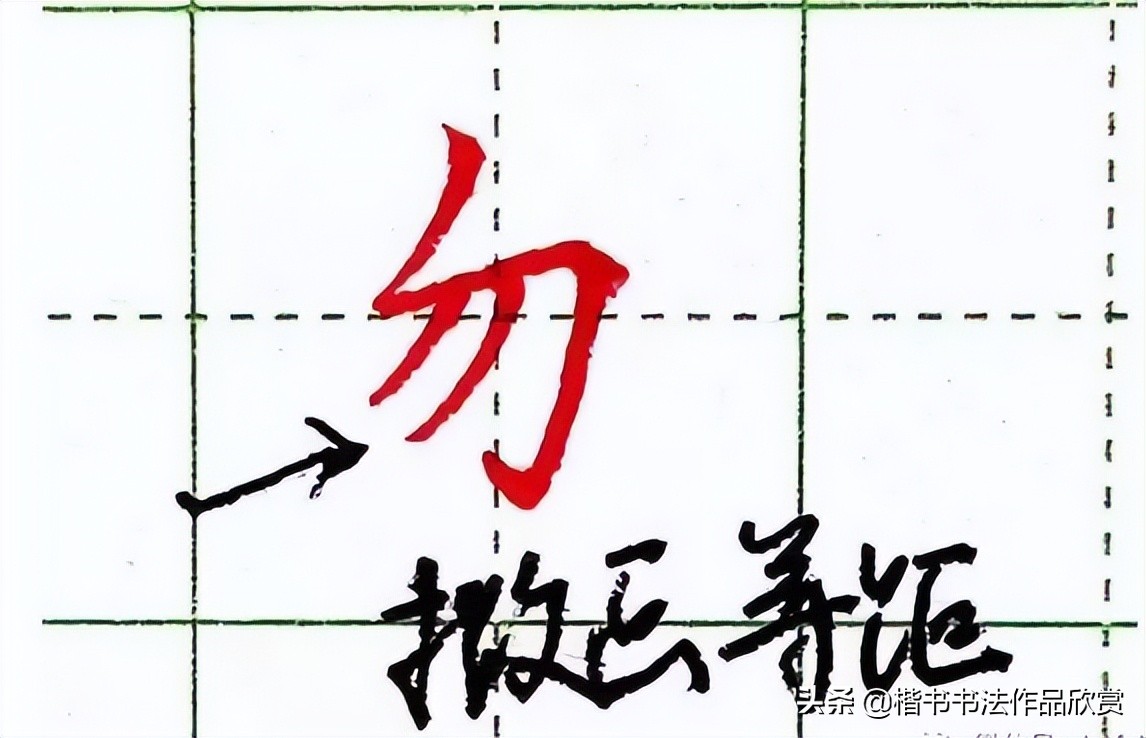 勿
撇忌等距
头条 @楷书书法作品欣赏